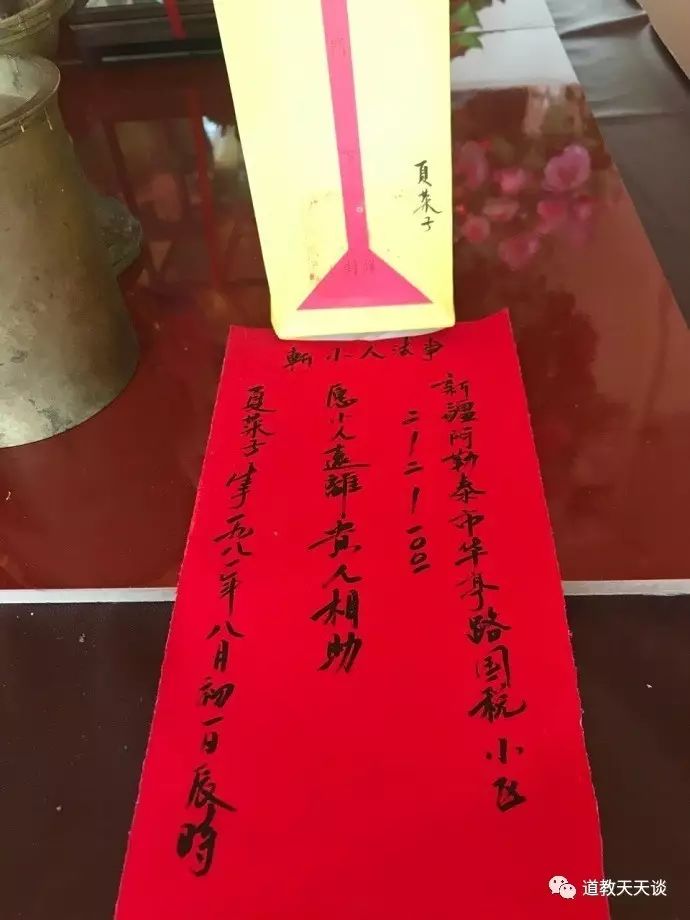 夏菜子
斬小人法事
新疆阿勒泰市华亭路国税小区
二-二-一00二
愿小人遠離 貴人相助
夏菜子 生于一九八一年八月初一日辰時
道教天天谈